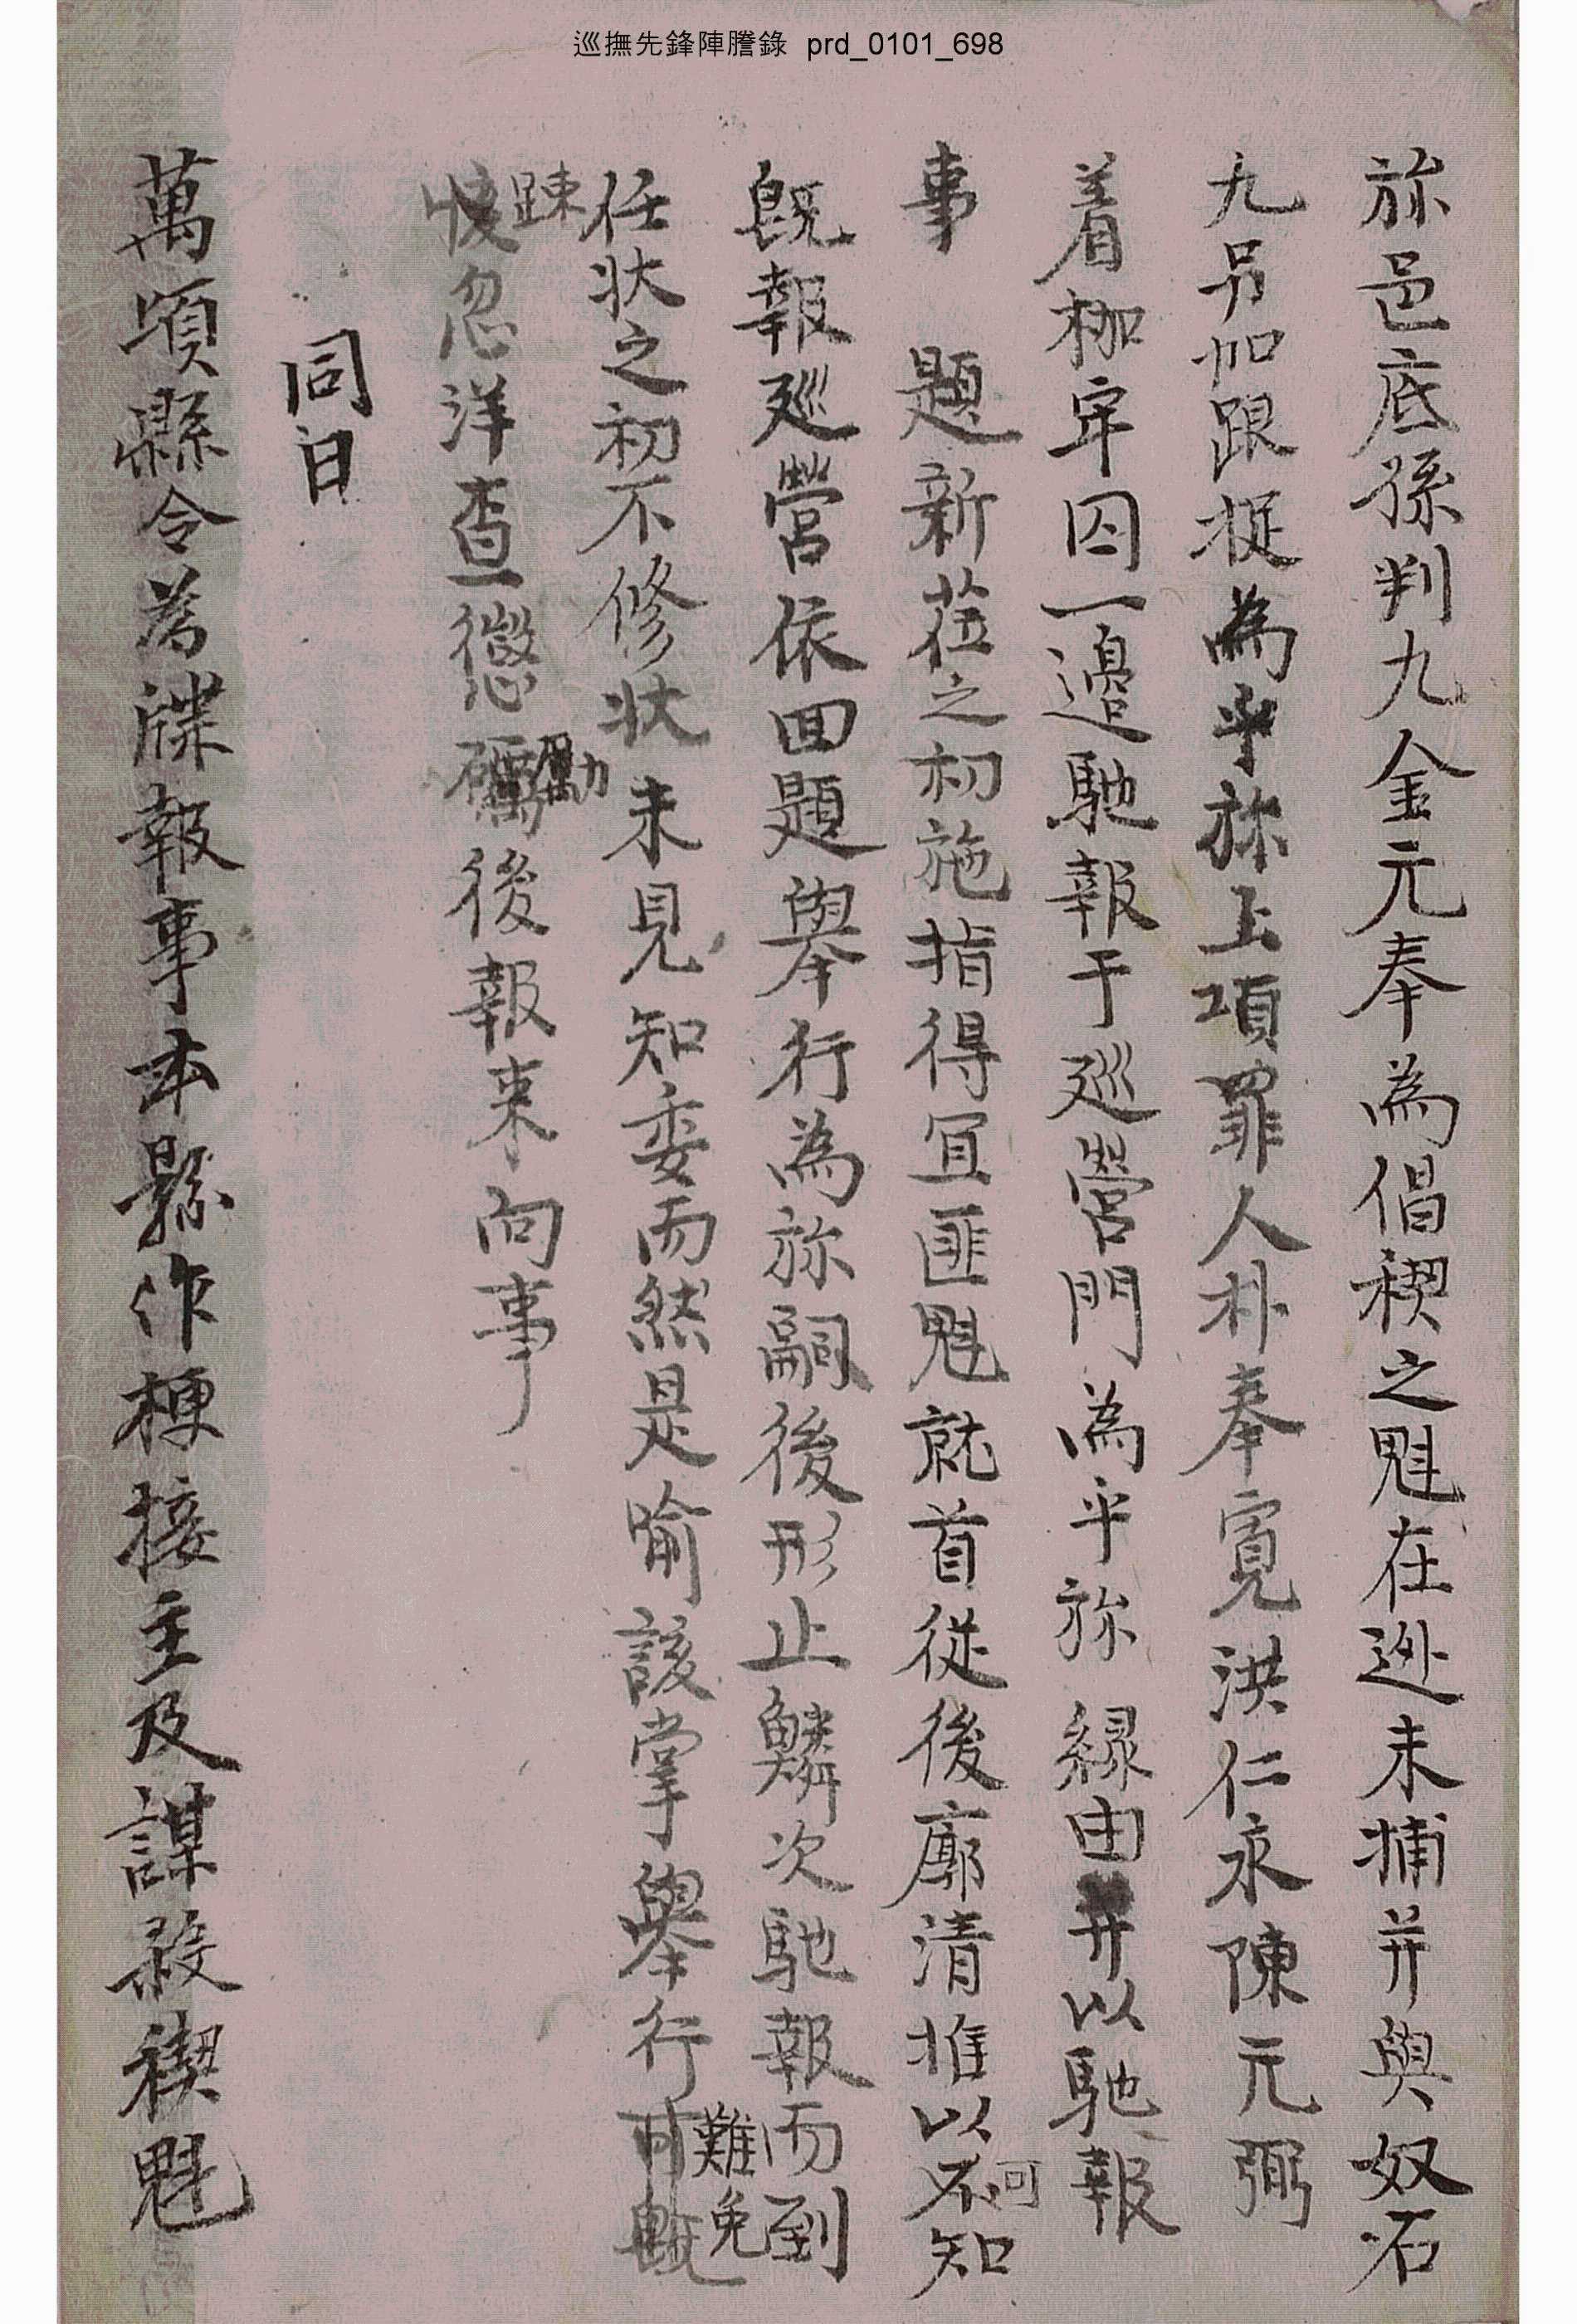 巡撫先鋒陣謄錄 prd_0101_698
旀邑底孫判九金元奉為倡稧之魁在逃未捕并與奴石
九另加跟捉為乎旀上項罪人朴奉寬洪仁永陳元弼
着枷牢囚一邊馳報于巡營門為乎旀緣由并以馳報
事 題新莅之初施措得宜匪魁就首從後廓清推以可知
旣報巡營依回題擧行為旀嗣後形止鱗次馳報而到
任狀之初不修狀未見知委而然是喻該掌擧行難免
踈忽洋查懲勵後報來向事
同日
萬頃縣令為牒報事本縣作梗接主及謀殺稧魁